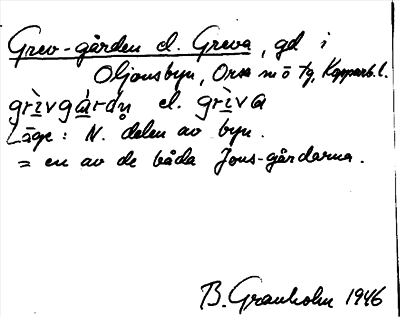 Grev-gården el. Greva, gd i
Oljonsbyn, Orsa sn o tg, Kopparb. l.
grìvgárdn̥ el. grìva
Läge: N. delen av byn.
= en av de båda Jons-gårdarna.
B. Granholm 1946